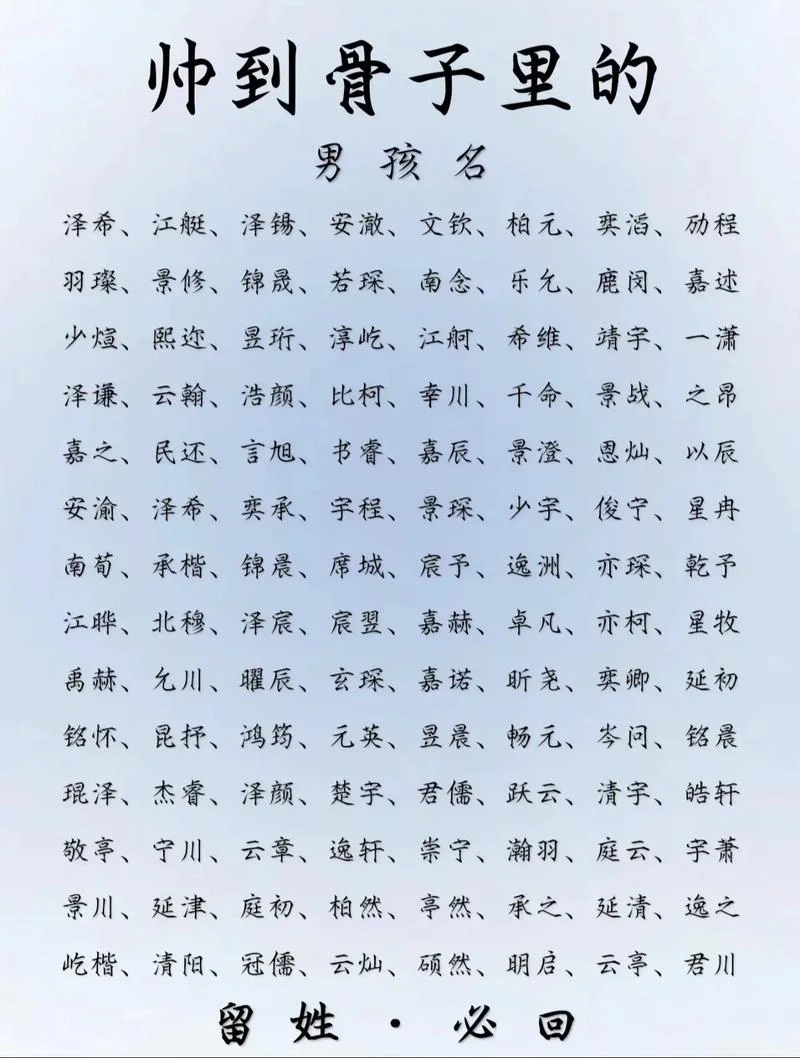 帅到骨子里的
男孩名
泽希、江艇、泽锡、安澈、文钦、柏元、奕滔、劢程
羽璨、景修、锦晟、若琛、南念、乐允、鹿闵、嘉述
少煊、熙迩、昱珩、淳屹、江舸、希维、靖宇、一潇
泽谦、云翰、浩颜、比柯、幸川、千命、景战、之昂
嘉之、民还、言旭、书睿、嘉辰、景澄、恩灿、以辰
安渝、泽希、奕承、宇程、景琛、少宇、俊宁、星冉
南荀、承楷、锦晨、席城、宸予、逸洲、亦琛、乾予
江晔、北穆、泽宸、宸翌、嘉赫、卓凡、亦柯、星牧
禹赫、允川、曜辰、玄琛、嘉诺、昕尧、奕卿、延初
铭怀、昆抒、鸿筠、元英、昱晨、畅元、岑问、铭晨
琨泽、杰睿、泽颜、楚宇、君儒、跃云、清宇、皓轩
敬亭、宁川、云章、逸轩、崇宁、瀚羽、庭云、宇萧
景川、延津、庭初、柏然、亭然、承之、延清、逸之
屹楷、清阳、冠儒、云灿、硕然、明启、云亭、君川
留姓·必回